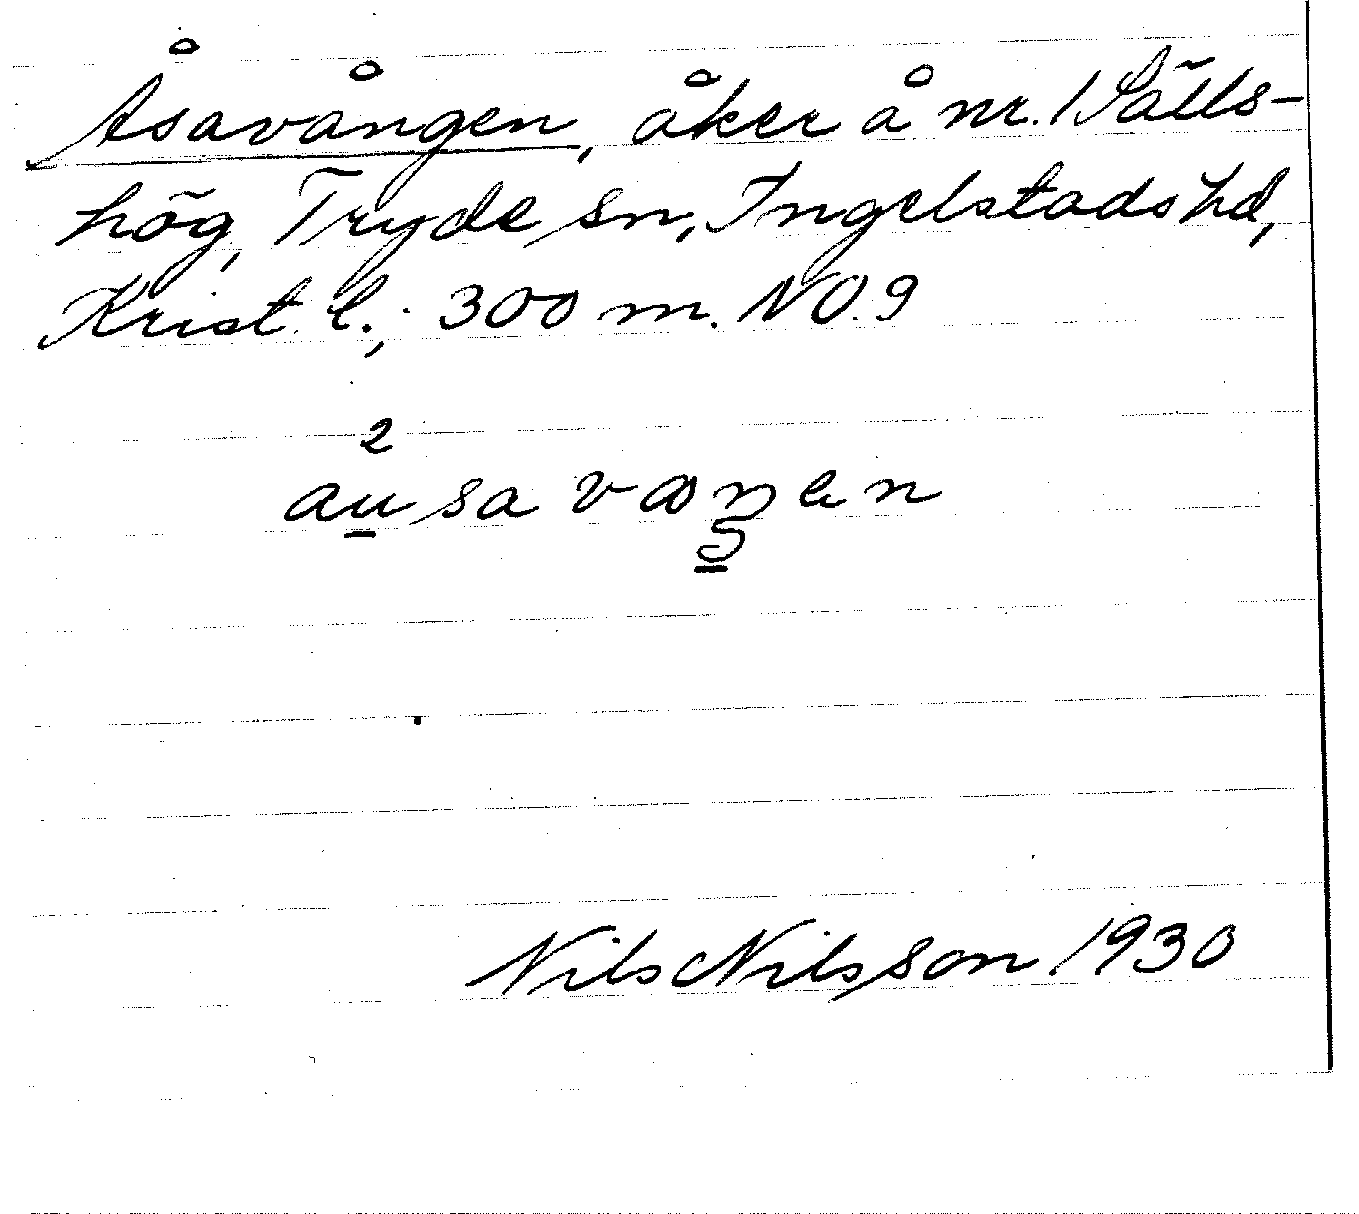 Åsavången, åker å nr. 1 Sälls-
hög, Tryde sn, Ingelstads hd,
Krist. l.; 300 m. NO. 9
2
au̲sa vaŋen
5
Nils Nilsson 1930